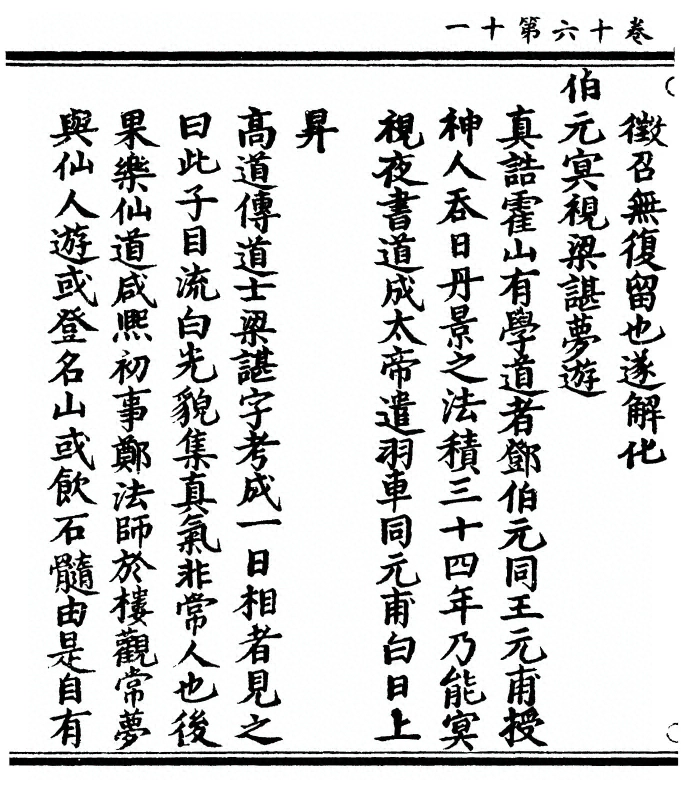 卷十六第十一
徵召無復留也遂解化
伯元㝠視梁諶夢遊
真誥霍山有學道者鄧伯元同王元甫授
神人吞日丹景之法積三十四年乃能㝠
視夜書道成太帝遣羽車同元甫白日上
昇
高道傳道士梁諶字考成一日相者見之
曰此子目流白光貌集真氣非常人也後
果樂仙道咸熈初事鄭法師於樓觀常夢
與仙人遊或登名山或飲石髓由是自有